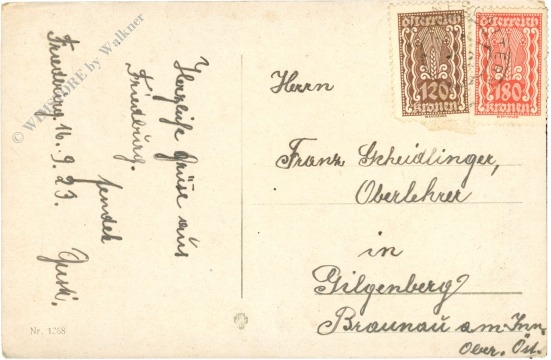 Friedburg 16. 9. 23.
Herzliche Grüße aus
Friedburg.
sendet
Gusti.
Nr. 1288
© WAISCORE by Walkner
österreich
120
kronen
österreich
180
kronen
Herrn
Franz Scheidlinger,
Oberlehrer
in
Gilgenberg
Braunau am Inn
Ober. Öst.